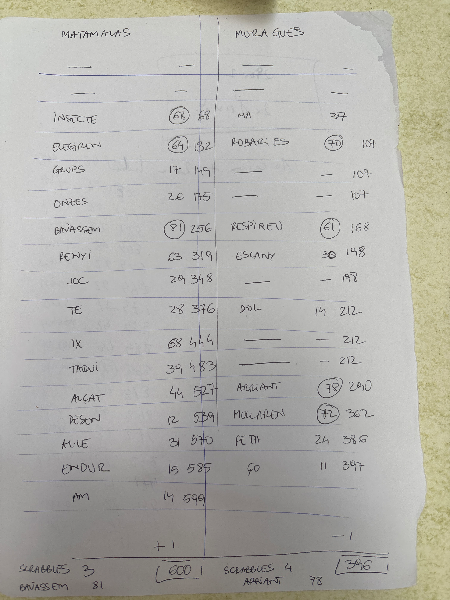 MATAMALAS MORAGUES
— — — —
— — — —
INSECTE 68 68 MA 37
64 132 ROBARIES 70 107
GRUPS 17 149 — — 107
ONTES 26 175 — — 107
BAVASSEM 81 256 RESPIREN 61 168
RENYI 63 319 ESCANY 30 198
JOC 29 348 — — 198
TE 28 376 DOL 14 212
IX 68 444 — — 212
39 483 — — 212
ALÇAT 44 527 ARRIANT 78 290
12 539 72 362
31 570 FETA 24 386
ENDUR 15 585 ÇO 11 397
AM 14 599
+1 -1
600 396
SCRABBLES 3 SCRABBLES 4
BAVASSEM 81 ARRIANT 78